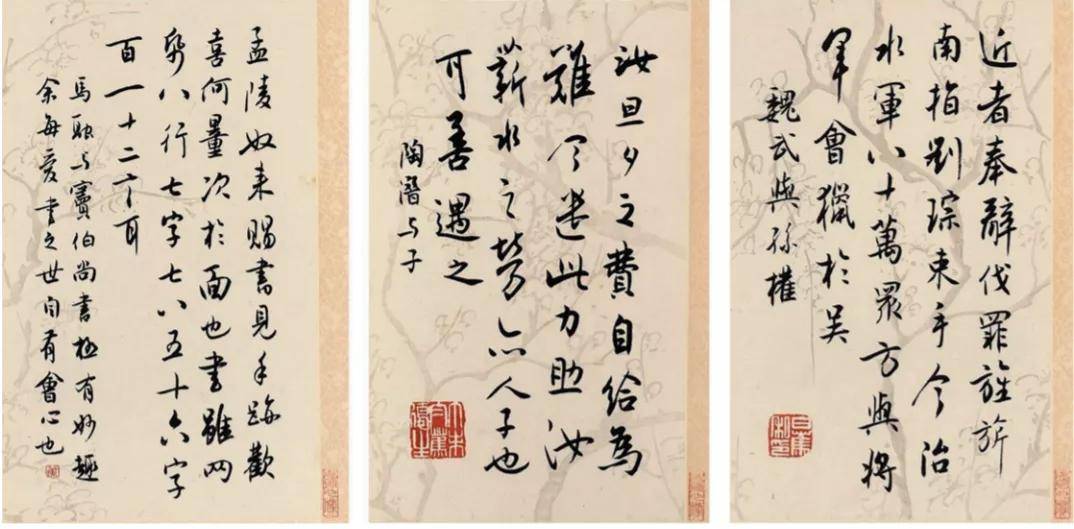 近者奉辭伐罪旌旂
南指劉琮束手今治
水軍八十萬眾方與將
軍會獵於吳
魏武與孫權
汝旦夕之費自給為
難今遣此力助汝
薪水之勞亦人子也
可善遇之
陶潛与子
孟陵奴来賜書見手跡歡
喜何量次於面也書雖兩
紙八行七字七八五十六字
百一十二字耳
馬融与竇伯尚書極有妙趣
余每愛書之世自有會心也